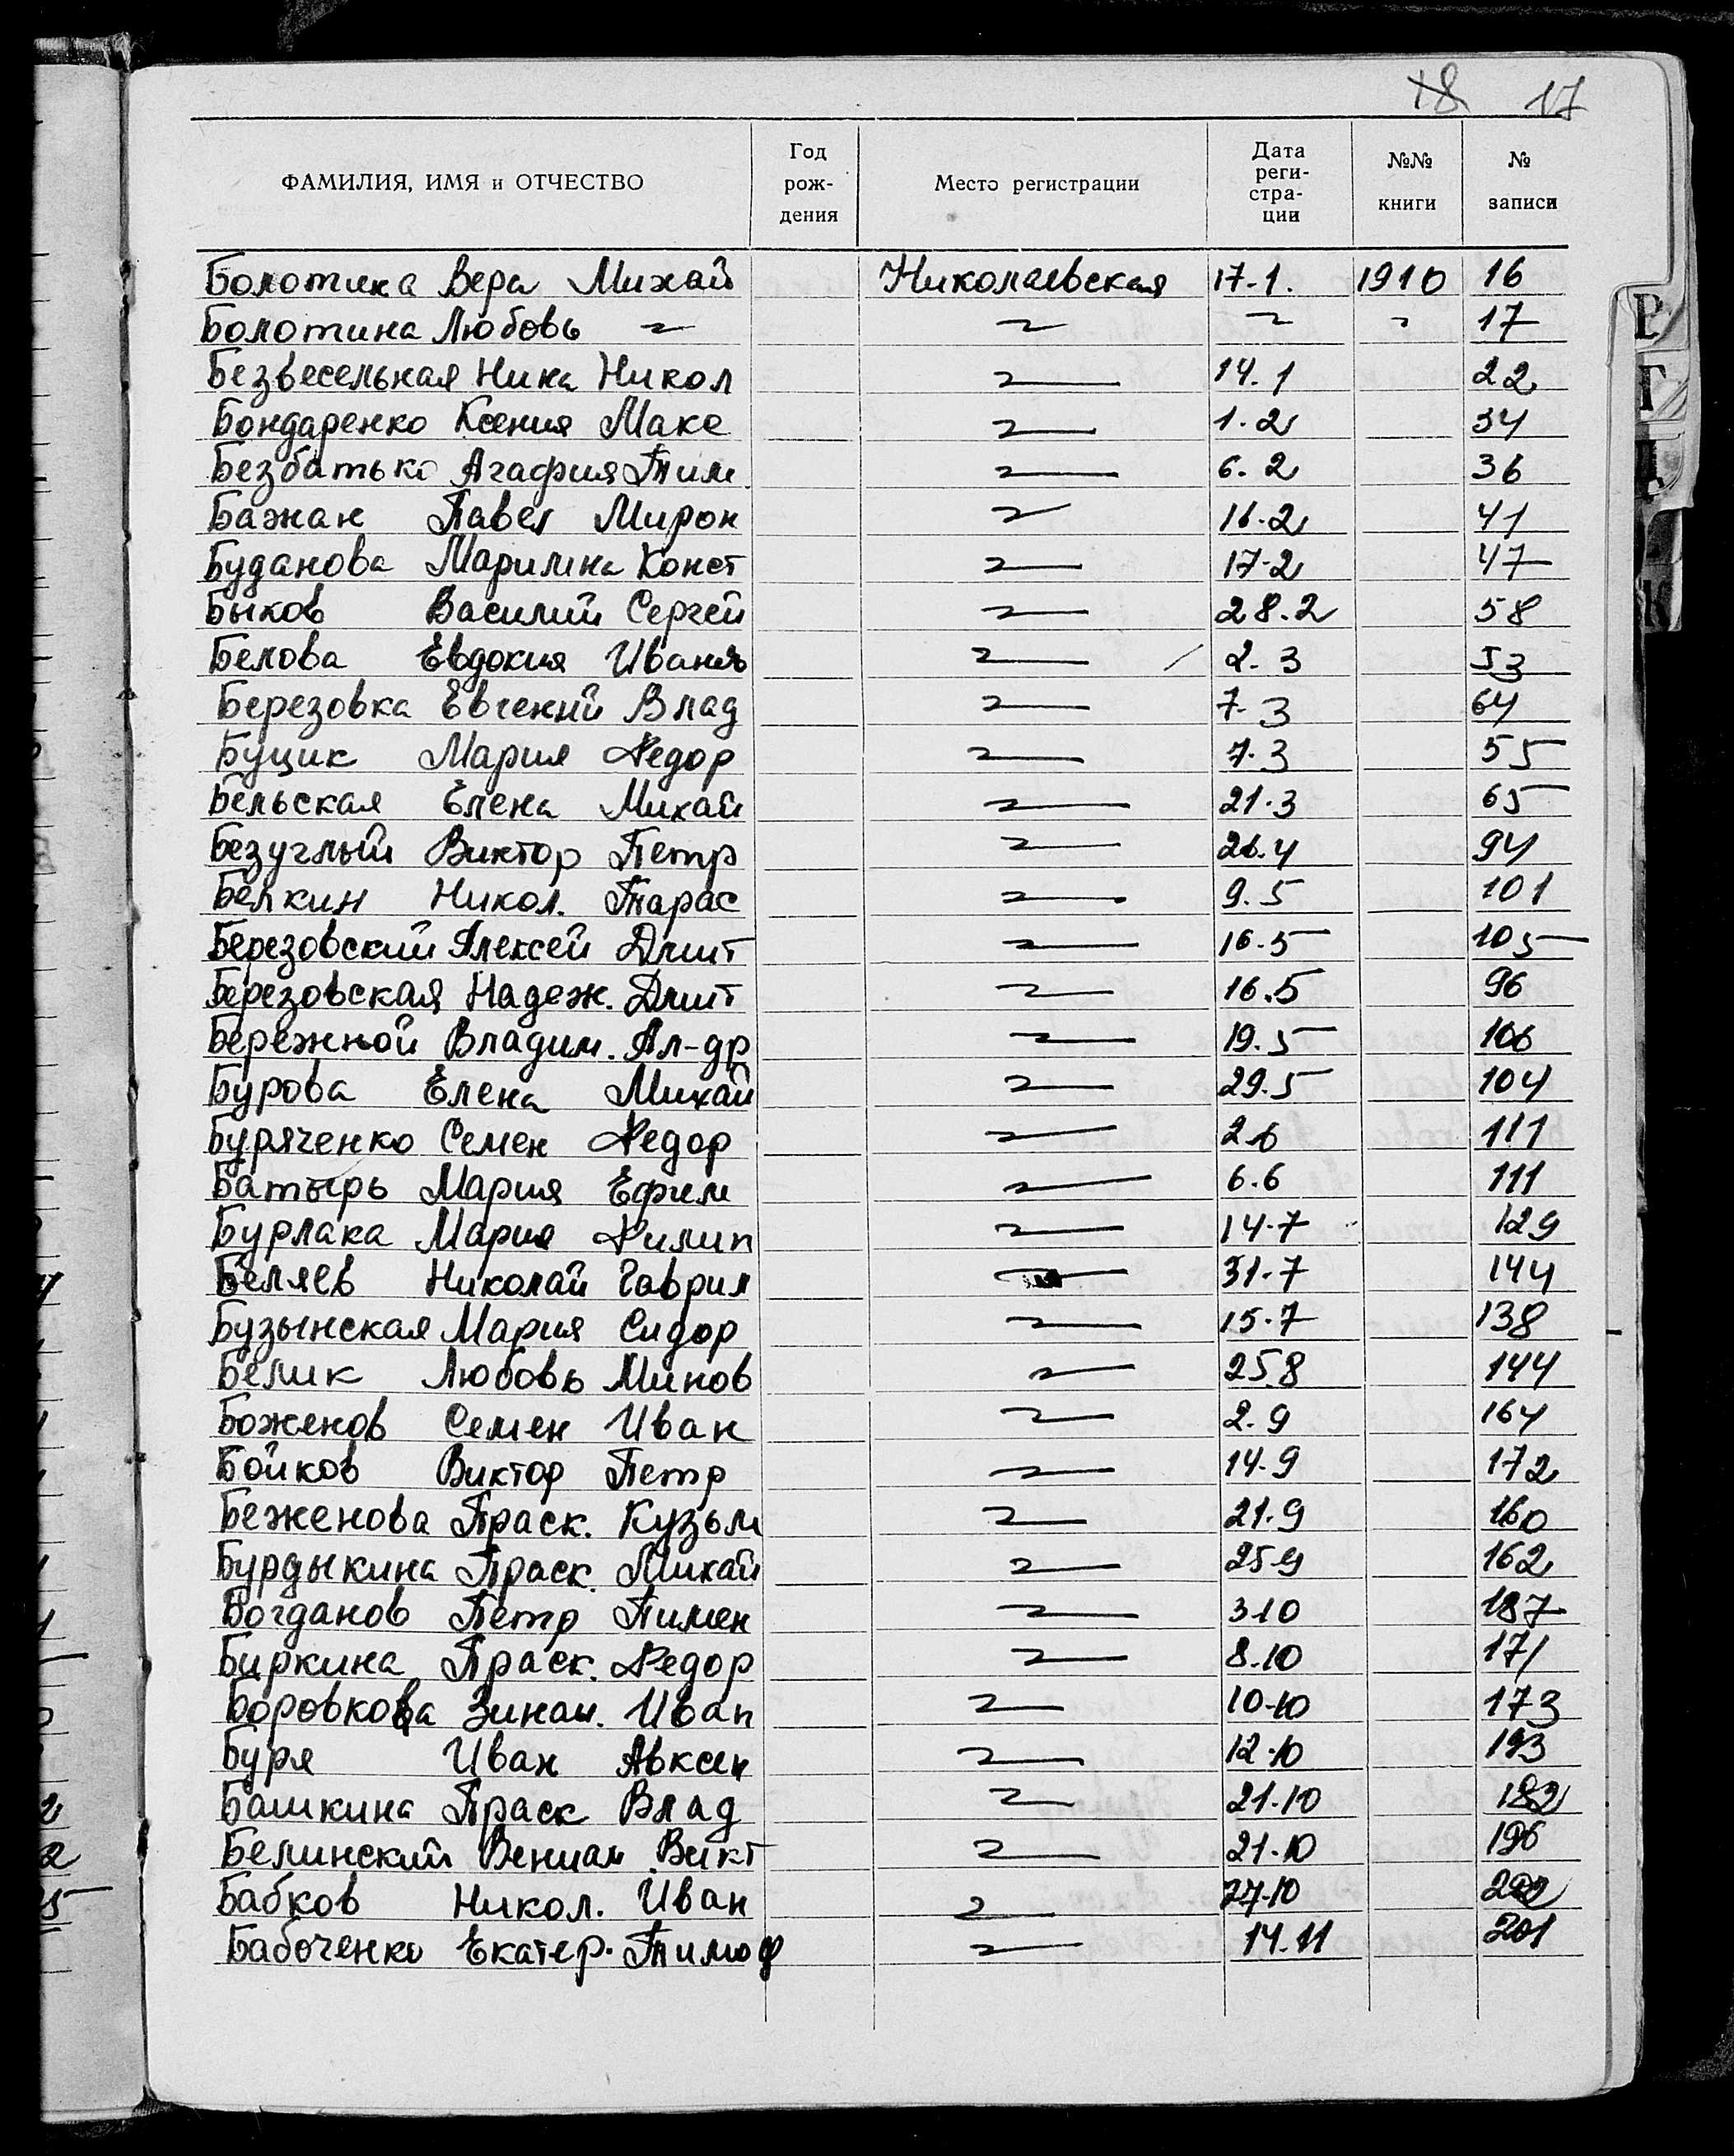 18 17
ФАМИЛИЯ, ИМЯ и ОТЧЕСТВО Год рож-дения Место регистрации Дата реги-стра-ции №№ книги № записи
Болотина Вера Михай Николаевская 17-1. 1910 16
Болотина Любовь 17
Безвесельная Нина Никол 14.1 22
Бондаренко Ксения Макс 1.2 34
Безбатько Агафия Тим 6.2 36
Бажан Павел Мирон 16.2 41
Буданова Мариmна Конст 17-2 47
Быков Василий Сергей 28.2 58
Белова Евдокия Ивання 2.3 53
Березовка Евгений Влад 7-3 64
Буцик Мария Федор 7.3 55
Бельская Елена Михай 21.3 65
Безуглый Виктор Петр 26.4 94
Белкин Никол. Тарас 9.5 101
Березовский Алексей Дмит 16.5 105
Березовская Надеж. Дмит 16.5 96
Бережной Владим. Ал-др 19.5 106
Бурова Елена Михай 29.5 104
Буряченко Семен Федор 2 6 111
Батырь Мария Ефим 6.6 111
Бурлака Мария Филип 14.7 129
Беляев Николай Гаврил 31.7 144
Бузынская Мария Сидор 15.7 138
Белик Любовь Минов 25.8 144
Боженов Семен Иван 2.9 164
Бойков Виктор Петр 14.9 172
Беженова Праск. Кузьм 21.9 160
Бурдыкина Праск. Михай 25 9 162
Богданов Петр Пимен 3 10 187
Биркина Праск. Федор 8.10 171
Боровкова Зинаи. Иван 10-10 173
Буря Иван Авксен 12.10 193
Башкина Праск Влад 21.10 182
Белинский Вениам Викт 21.10 196
Бабков Никол. Иван 27.10
Бабоченко Екатер. Тимоф 14.11 201